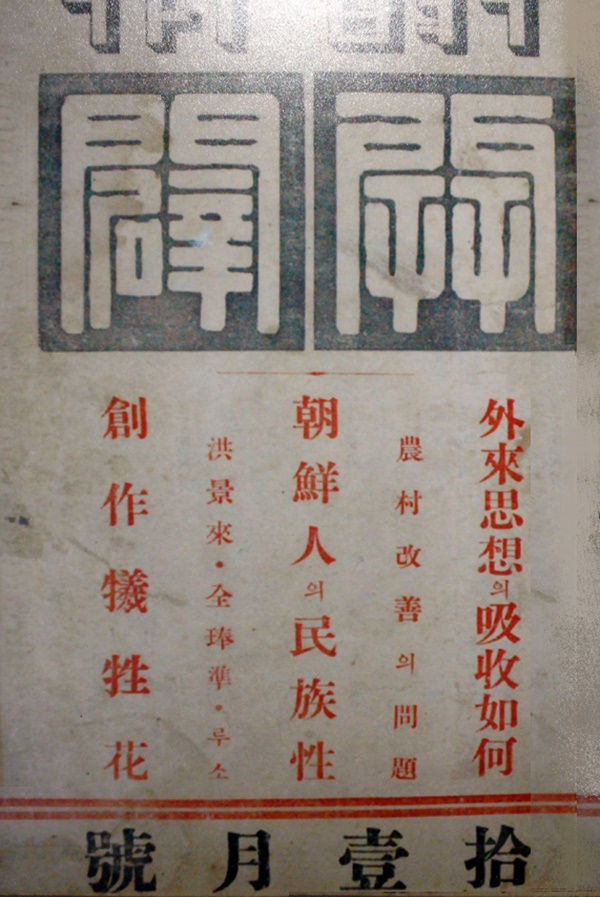 開闢
外來思想의吸收如何
農村改善의問題
朝鮮人의民族性
洪景來·全琫準·루소
創作犧牲花
拾壹月號